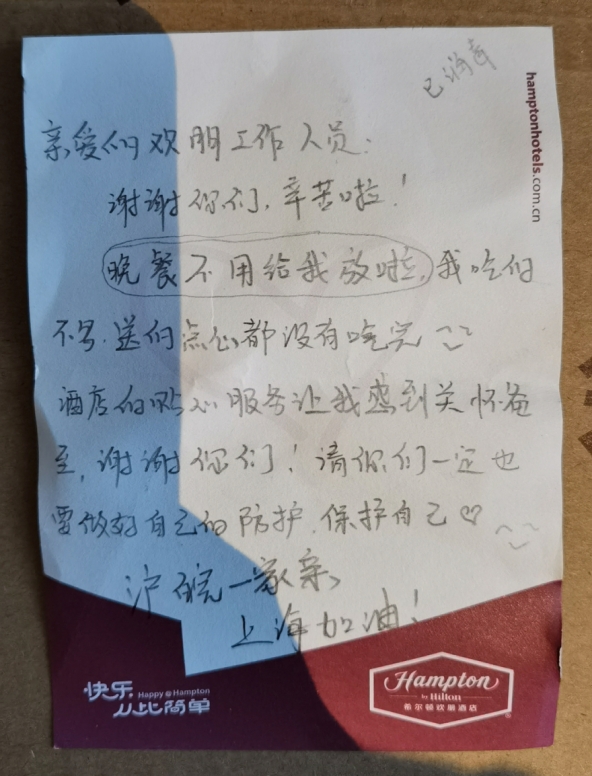 已消毒
hamptonhotels.com.cn
亲爱的欢朋工作人员:
谢谢你们,辛苦啦!
晚餐不用给我放啦,我吃的
不多.送的点心都没有吃完
酒店的贴心服务让我感到关怀备
至,谢谢你们!请你们一定也
要做好自己的防护.保护自己♡
沪皖一家亲、
上海加油!
快乐, Happy@Hampton
从此简单
Hampton
by Hilton
希尔顿欢朋酒店